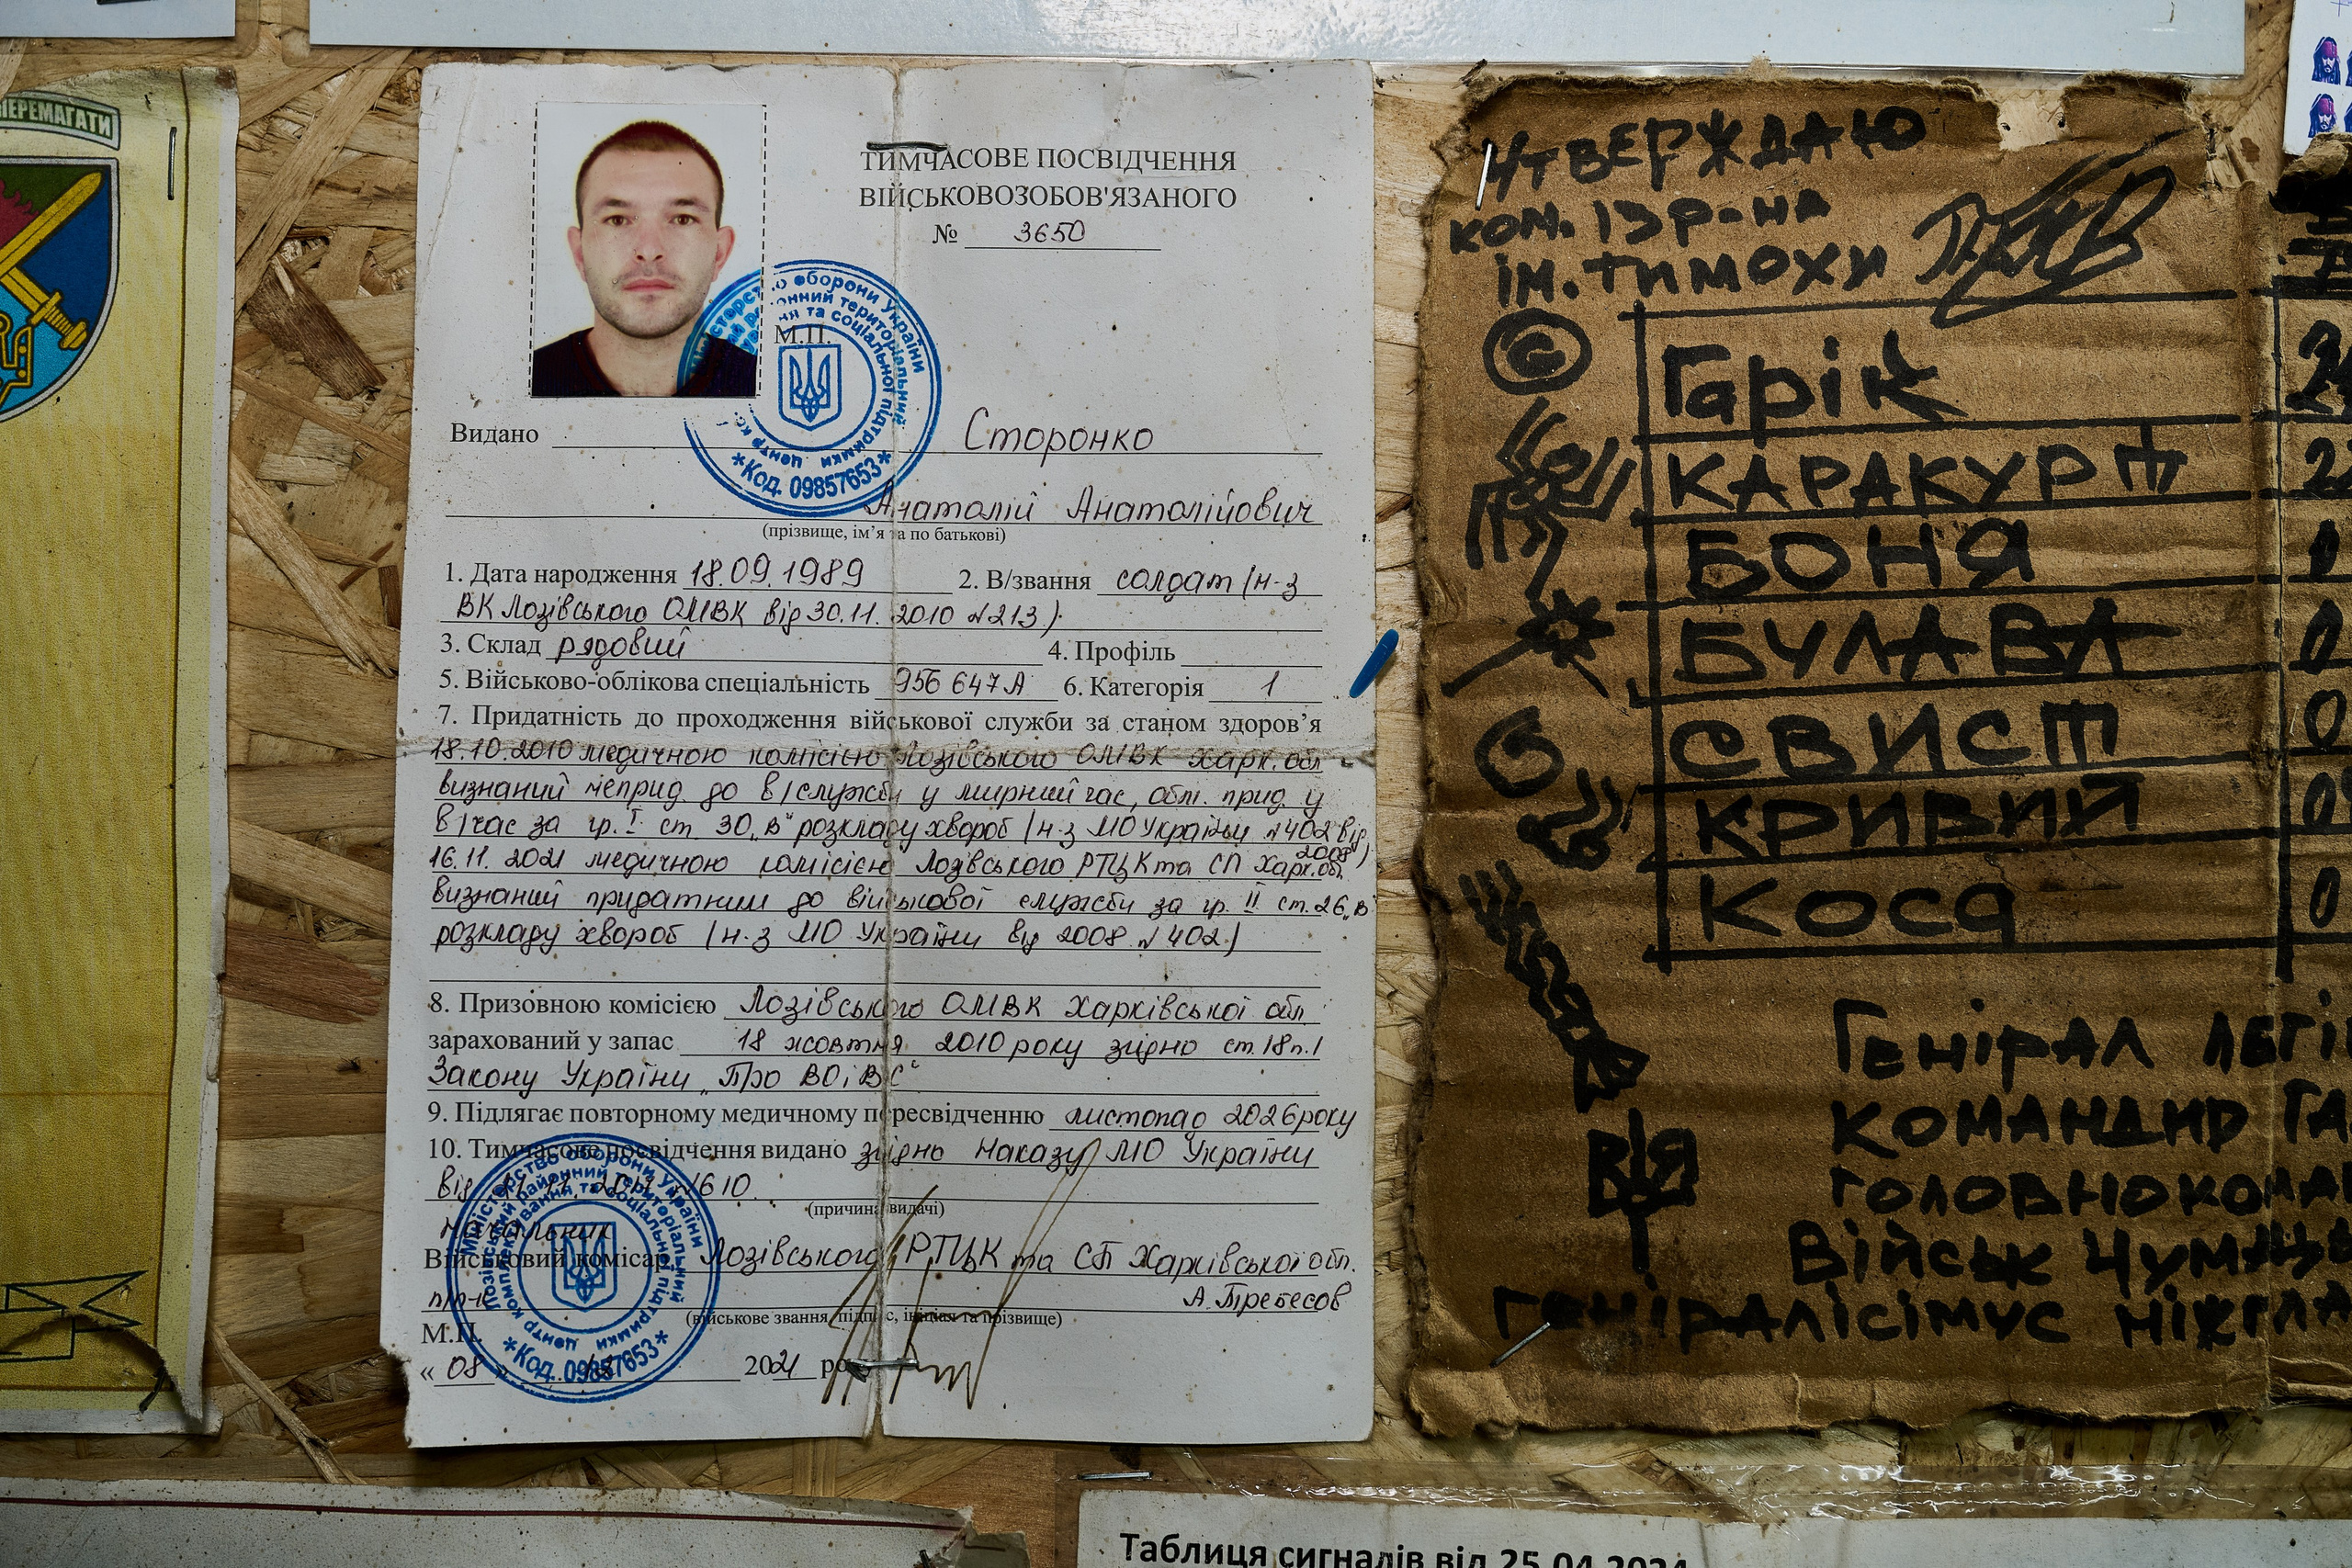 ПЕРЕМАГАТИ
ТИМЧАСОВЕ ПОСВІДЧЕННЯ
ВІЙСЬКОВОЗОБОВ'ЯЗАНОГО
№ 3650
М.П.
Міністерство оборони України
Код. 09857653
Видано Сторонко
Анатолій Анатолійович
(прізвище, ім’я та по батькові)
1. Дата народження 18.09.1989 2. В/звання солдат (н-з
ВК Лозівського ОМВК від 30.11.2010 №213)
3. Склад рядовий 4. Профіль
5. Військово-облікова спеціальність 956 647А 6. Категорія 1
7. Придатність до проходження військової служби за станом здоров’я
18.10.2010 медичною комісією Лозівського ОМВК Харк. обл
визнаний неприд. до в/служби у мирний час, обм. прид. у
в/час за гр. I ст. 30 „в" розкладу хвороб (н-з МО України №402 від
2008)
16.11.2021 медичною комісією Лозівського РТЦК та СП Харк. обл.
визнаний придатним до військової служби за гр. II ст. 26 „в"
розкладу хвороб (н-з МО України від 2008 №402)
8. Призовною комісією Лозівського ОМВК Харківської обл.
зарахований у запас 18 жовтня 2010 року згідно ст. 18 п. 1
Закону України „Про ВО і ВС"
9. Підлягає повторному медичному пересвідченню листопад 2026 року
10. Тимчасове посвідчення видано згідно Наказу МО України
від 610.
(причина видачі)
начальник
Військовий комісар Лозівського РТЦК та СП Харківської обл.
п/п-к А. Требесов
(військове звання, підпис, ініціал та прізвище)
М.П.
« 08 » 2021 ро
Міністерство оборони України
Лозівський районний територіальний
центр комплектування та соціальної підтримки
Код. 09857653
УТВЕРЖДАЮ
КОМ. ІЗ Р-НА
ІМ. ТИМОХИ
Гарік
КАРАКУРТ
БОНЯ
БУЛАВА
СВИСТ
КРИВИЙ
КОСА
ГЕНІРАЛ ЛЕГІ
КОМАНДИР ГА
ГОЛОВНОКОМА
ВІЙСЬК
ГЕНІРАЛІСІМУС
Таблиця сигналів від 25.04.2024